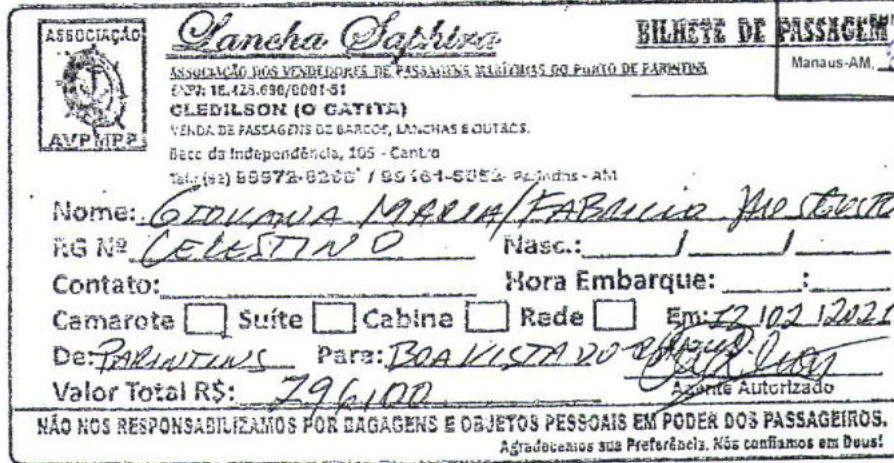 ASSOCIAÇÃO
AVPMPP
Lancha Saphira
BILHETE DE PASSAGEM
Manaus-AM,
ASSOCIAÇÃO DOS VENDEDORES DE PASSAGENS MARÍTIMAS DO PORTO DE PARINTINS
CLEDILSON (O CATITA)
VENDA DE PASSAGENS DE BARCOS, LANCHAS E OUTROS.
Beco da Independência, 105 - Centro
Parintins - AM
Nome: GIOVANA MARIA/FABRICIO
RG Nº CELESTINO Nasc.: / /
Contato: Hora Embarque: :
Camarote Suíte Cabine Rede Em: 12/02/2021
De: PARINTINS Para: BOA VISTA DO
Valor Total R$: 796,00 Agente Autorizado
NÃO NOS RESPONSABILIZAMOS POR BAGAGENS E OBJETOS PESSOAIS EM PODER DOS PASSAGEIROS.
Agradecemos sua Preferência. Nós confiamos em Deus!